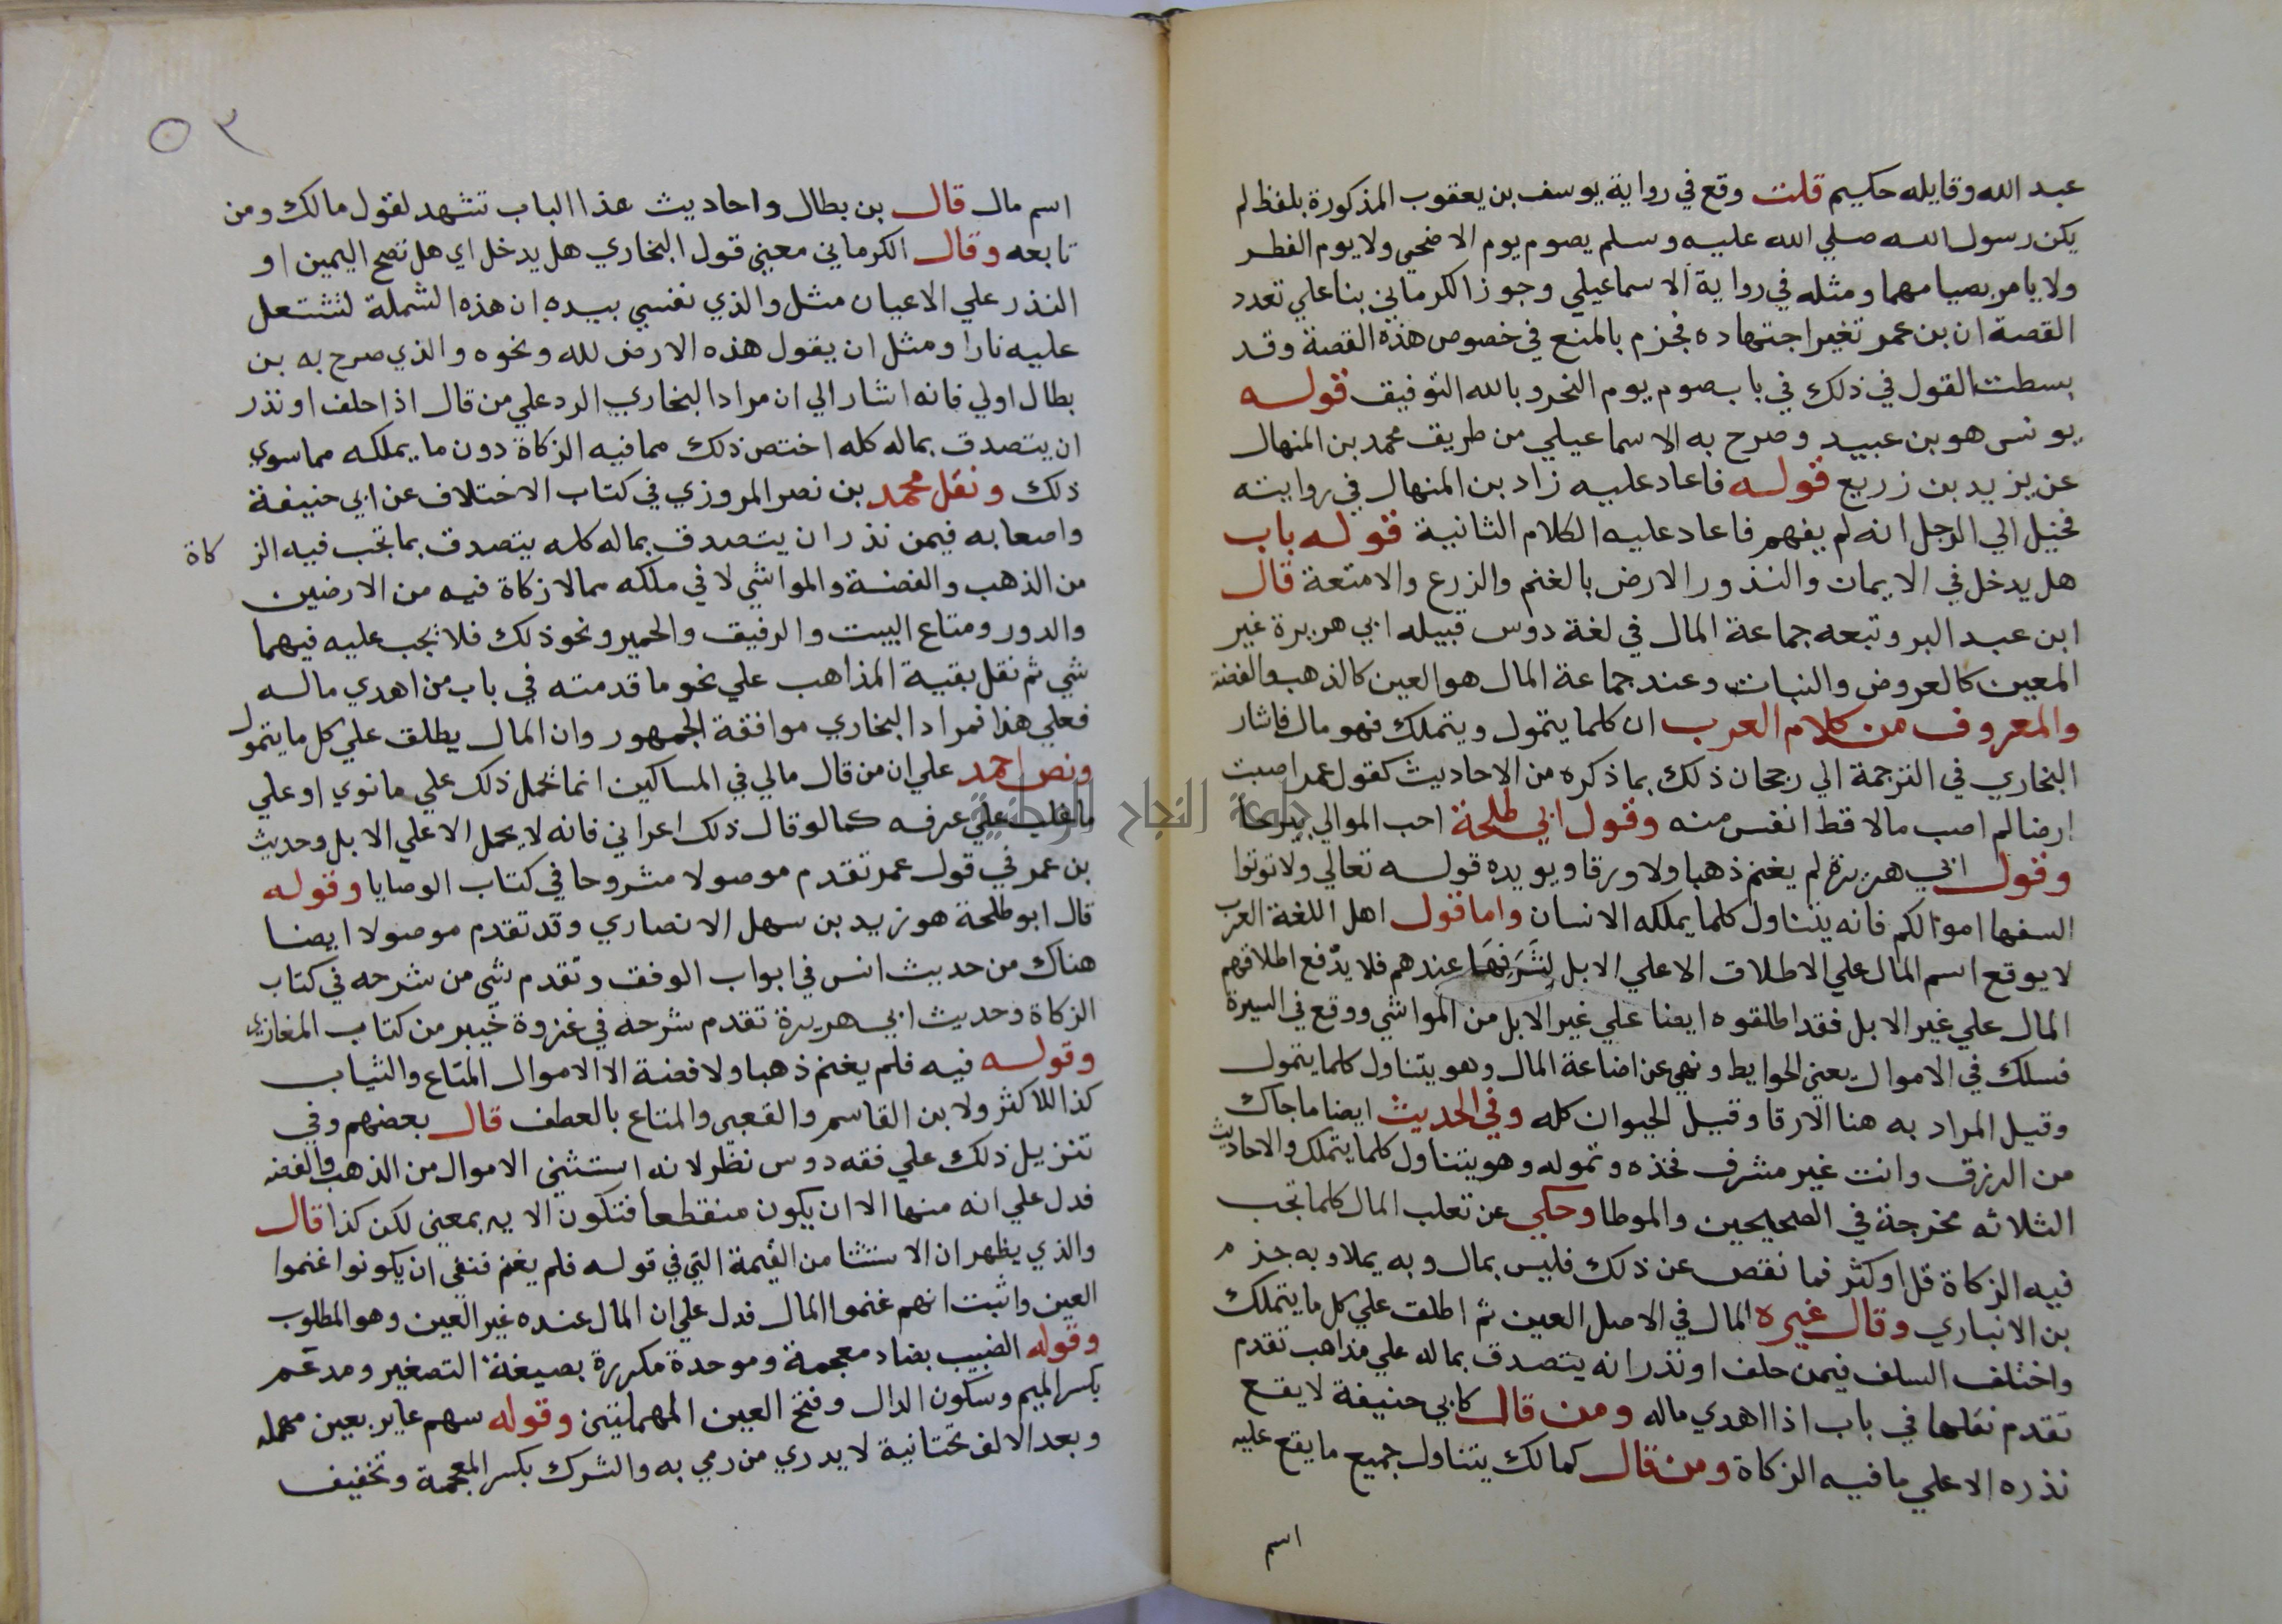 عبد الله وقايله حكيم قلت وقع في رواية يوسف بن يعقوب المذكورة بلفظ لم
يكن رسول الله صلي الله عليه وسلم يصوم يوم الاضحي ولا يوم الفطر
ولا يامر بصيامهما ومثله في رواية الاسماعيلي وجوز الكرماني بنا علي تعدد
القصة ان بن عمر تغير اجتهاده فجزم بالمنع في خصوص هذه القصة وقد
بسطت القول في ذلك في باب صوم يوم النحر وبالله التوفيق قوله
يونس هو بن عبيد وصرح به الاسماعيلي من طريق محمد بن المنهال
عن يزيد بن زريع قوله فاعاد عليه زاد بن المنهال في روايته
فخيل الي الرجل انه لم يفهم فاعاد عليه الكلام الثانية قوله باب
هل يدخل في الايمان والنذور الارض بالغنم والزرع والامتعة قال
ابن عبد البر وتبعه جماعة المال في لغة دوس قبيله ابي هريرة غير
المعين كالعروض والنبات وعند جماعة المال هو العين كالذهب والفضة
والمعروف من كلام العرب ان كلما يتمول ويتملك فهو مال فاشار
البخاري في الترجمة الي رجحان ذلك بما ذكره من الاحاديث كقول عمر اصبت
ارضا لم اصب مالا قط انفس منه وقول ابي طلحة احب الموالي بيرحا
وقول ابي هريرة لم يغنم ذهبا ولا ورقا ويويده قوله تعالي ولا توتوا
السفها اموالكم فانه يتناول كلما يملكه الانسان واما قول اهل اللغة العرب
لا يوقع اسم المال علي الاطلاق الا علي الابل لِشَرَفِهَا عندهم فلا يدفع اطلاقهم
المال علي غير الابل فقد اطلقوه ايضا علي غير الابل من المواشي ووقع في السيرة
فسلك في الاموال يعني الحوايط ونهي عن اضاعة المال وهو يتناول كلما يتمول
وقيل المراد به هنا الارقا وقيل الحيوان كله وفي الحديث ايضا ما جاك
من الرزق وانت غير مشرف فخذه وتموله وهو يتناول كلما يتملك والاحاديث
الثلاثه مخرجة في الصحيحين والموطا وحكي عن ثعلب المال كلما تجب
فيه الزكاة قل او كثر فما نقص عن ذلك فليس بمال وبه يملا وبه جزم
بن الانباري وقال غيره المال في الاصل العين ثم اطلق علي كل ما يتملك
واختلف السلف فيمن حلف او نذر انه يتصدق بماله علي مذاهب تقدم
تقدم نقلها في باب اذا اهدي ماله ومن قال كابي حنيفة لا يقع
نذره الا علي ما فيه الزكاة ومن قال كمالك يتناول جميع ما يقع عليه
اسم
٥٣
اسم مال قال بن بطال واحاديث هذا الباب تشهد لقول مالك ومن
تابعه وقال الكرماني معني قول البخاري هل يدخل اي هل تصح اليمين او
النذر علي الاعيان مثل والذي نفسي بيده ان هذه الشملة لتشتعل
عليه نارا ومثل ان يقول هذه الارض لله ونحوه والذي صرح به بن
بطال اولي فانه اشار الي ان مراد البخاري الرد علي من قال اذا حلف او نذر
ان يتصدق بماله كله اختص ذلك مما فيه الزكاة دون ما يملكه مما سوي
ذلك ونقل محمد بن نصر المروزي في كتاب الاختلاف عن ابي حنيفة
واصحابه فيمن نذر ان يتصدق بماله كله يتصدق بما تجب فيه الزكاة
من الذهب والفضة والمواشي لا في ملكه مما لا زكاة فيه من الارضين
والدور ومتاع البيت والرقيق والحمير ونحو ذلك فلا يجب عليه فيهما
شي ثم نقل بقية المذاهب علي نحو ما قدمته في باب من اهدي ماله
فعلي هذا فمراد البخاري موافقة الجمهور وان المال يطلق علي كل ما يتمول
ونص احمد علي ان من قال مالي في المساكين انما يحمل ذلك علي ما نوي او علي
ما غلب علي عرفه كما لو قال ذلك اعرابي فانه لا يحمل الا علي الابل وحديث
بن عمر في قول عمر تقدم موصولا مشروحا في كتاب الوصايا وقوله
قال ابو طلحة هو زيد بن سهل الانصاري وقد تقدم موصولا ايضا
هناك من حديث انس في ابواب الوقف وتقدم شي من شرحه في كتاب
الزكاة وحديث ابي هريرة تقدم شرحه في غزوة خيبر من كتاب المغازي
وقوله فيه فلم يغنم ذهبا ولا فضة الا الاموال المتاع والثياب
كذا للاكثر ولابن القاسم والقعبي والمتاع بالعطف قال بعضهم وفي
تنزيل ذلك علي فقه دوس نظر لانه استثني الاموال من الذهب والفضه
فدل علي انه منها الا ان يكون منقطعا فتكون الا يه بمعني لكن كذا قال
والذي يظهر ان الاستثنا من القيمة التي في قوله فلم يغنم فنفي ان يكونوا غنموا
العين واثبت انهم غنموا المال فدل علي ان المال عنده غير العين وهو المطلوب
وقوله الضبيب بضاد معجمة وموحدة مكررة بصيغة التصغير ومدعم
بكسر الميم وسكون الدال وفتح العين المهملتين وقوله سهم عاير بعين مهملة
وبعد الالف تحتانية لا يدري من رمي به والشرك بكسر المعجمة وتخفيف
جامعة النجاح الوطنية